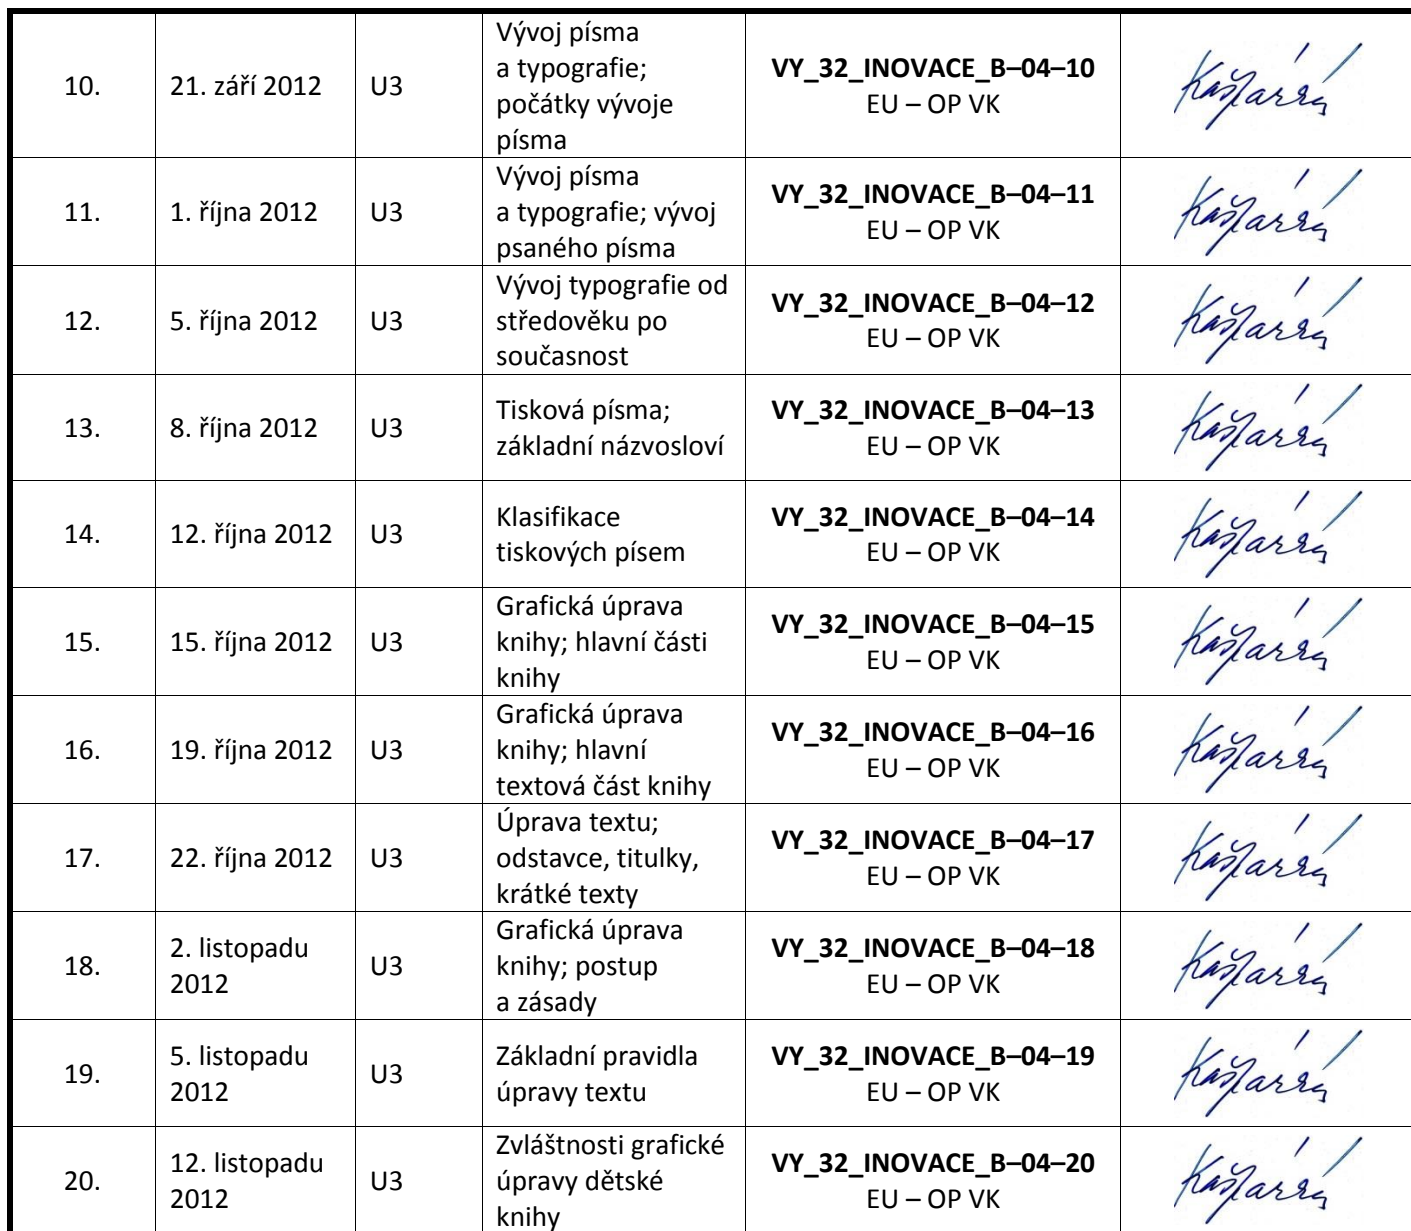 10.
21. září 2012
U3
Vývoj písma
a typografie;
počátky vývoje
písma
VY_32_INOVACE_B–04–10
EU – OP VK
11.
1. října 2012
U3
Vývoj písma
a typografie; vývoj
psaného písma
VY_32_INOVACE_B–04–11
EU – OP VK
12.
5. října 2012
U3
Vývoj typografie od
středověku po
současnost
VY_32_INOVACE_B–04–12
EU – OP VK
13.
8. října 2012
U3
Tisková písma;
základní názvosloví
VY_32_INOVACE_B–04–13
EU – OP VK
14.
12. října 2012
U3
Klasifikace
tiskových písem
VY_32_INOVACE_B–04–14
EU – OP VK
15.
15. října 2012
U3
Grafická úprava
knihy; hlavní části
knihy
VY_32_INOVACE_B–04–15
EU – OP VK
16.
19. října 2012
U3
Grafická úprava
knihy; hlavní
textová část knihy
VY_32_INOVACE_B–04–16
EU – OP VK
17.
22. října 2012
U3
Úprava textu;
odstavce, titulky,
krátké texty
VY_32_INOVACE_B–04–17
EU – OP VK
18.
2. listopadu
2012
U3
Grafická úprava
knihy; postup
a zásady
VY_32_INOVACE_B–04–18
EU – OP VK
19.
5. listopadu
2012
U3
Základní pravidla
úpravy textu
VY_32_INOVACE_B–04–19
EU – OP VK
20.
12. listopadu
2012
U3
Zvláštnosti grafické
úpravy dětské
knihy
VY_32_INOVACE_B–04–20
EU – OP VK